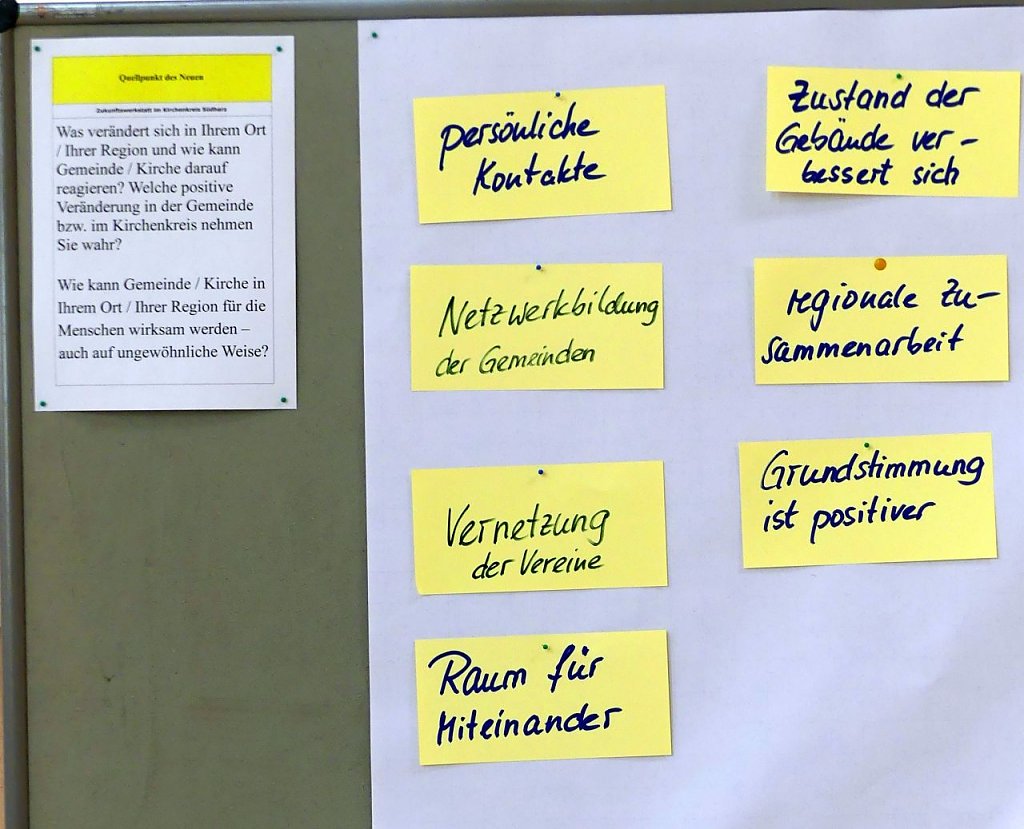 Quellpunkt des Neuen
Zukunftswerkstatt im Kirchenkreis Südharz
Was verändert sich in Ihrem Ort
/ Ihrer Region und wie kann
Gemeinde / Kirche darauf
reagieren? Welche positive
Veränderung in der Gemeinde
bzw. im Kirchenkreis nehmen
Sie wahr?
Wie kann Gemeinde / Kirche in
Ihrem Ort / Ihrer Region für die
Menschen wirksam werden –
auch auf ungewöhnliche Weise?
persönliche
Kontakte
Netzwerkbildung
der Gemeinden
Vernetzung
der Vereine
Raum für
Miteinander
Zustand der
Gebäude ver-
bessert sich
regionale Zu-
sammenarbeit
Grundstimmung
ist positiver